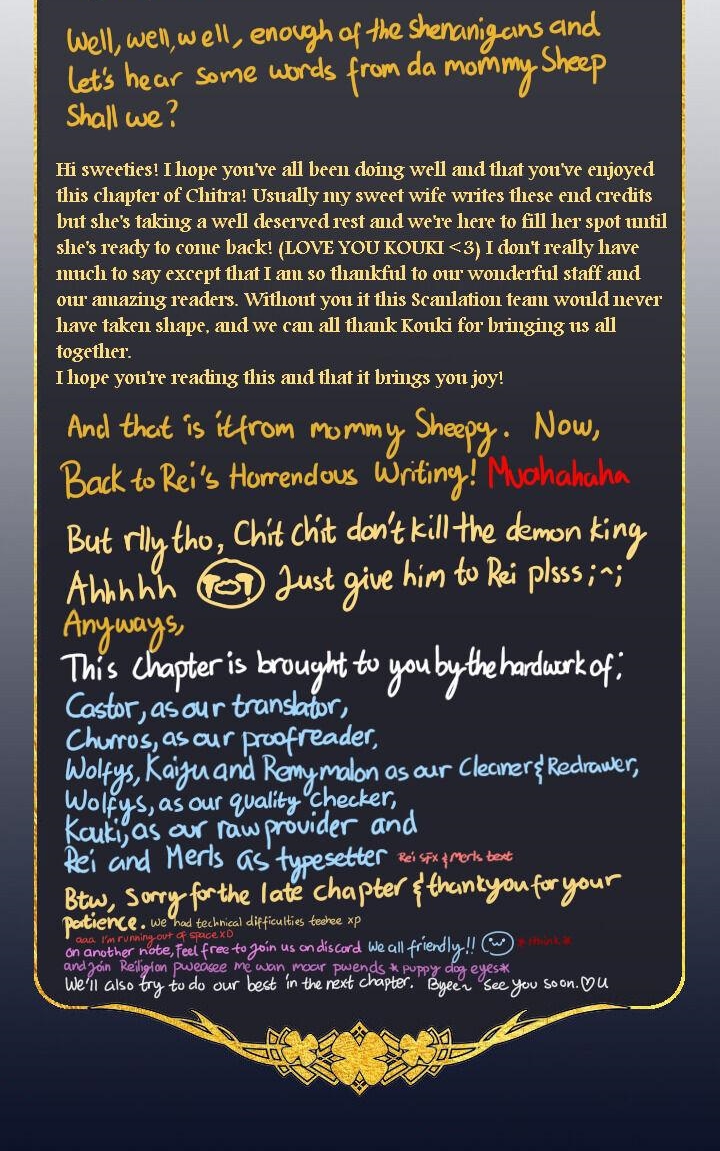 Well, well, well, enough of the shenanigans and
let's hear some words from da mommy Sheep
Shall we?
Hi sweeties! I hope you've all been doing well and that you've enjoyed
this chapter of Chitra! Usually my sweet wife writes these end credits
but she's taking a well deserved rest and we're here to fill her spot until
she's ready to come back! (LOVE YOU KOUKI <3) I don't really have
much to say except that I am so thankful to our wonderful staff and
our amazing readers. Without you it this Scanlation team would never
have taken shape, and we can all thank Kouki for bringing us all
together.
I hope you're reading this and that it brings you joy!
And that is it from mommy Sheepy. Now,
Back to Rei's Horrendous Writing! Muahahaha
But rlly tho, Chit Chit don't kill the demon king
Ahhhhh Just give him to Rei plsss ;^;
Anyways,
This Chapter is brought to you by the hardwork of;
Castor, as our translator,
Churros, as our proofreader,
Wolfys, Kaizu and Remymalon as our Cleaner & Redrawer,
Wolfys, as our quality checker,
Kouki, as our raw provider and
Rei and Merls as typesetter Rei SFX & Merls text
Btw, Sorry for the late chapter & thankyou for your
Patience. We had technical difficulties teehee xp
aaa I'm running out of space xD
on another note, Feel free to join us on discord We all friendly!! *think*
and join Reiligion pweasee me wan moar pwends * puppy dog eyes*
We'll also try to do our best in the next chapter. Byee~ See you soon. ♡u